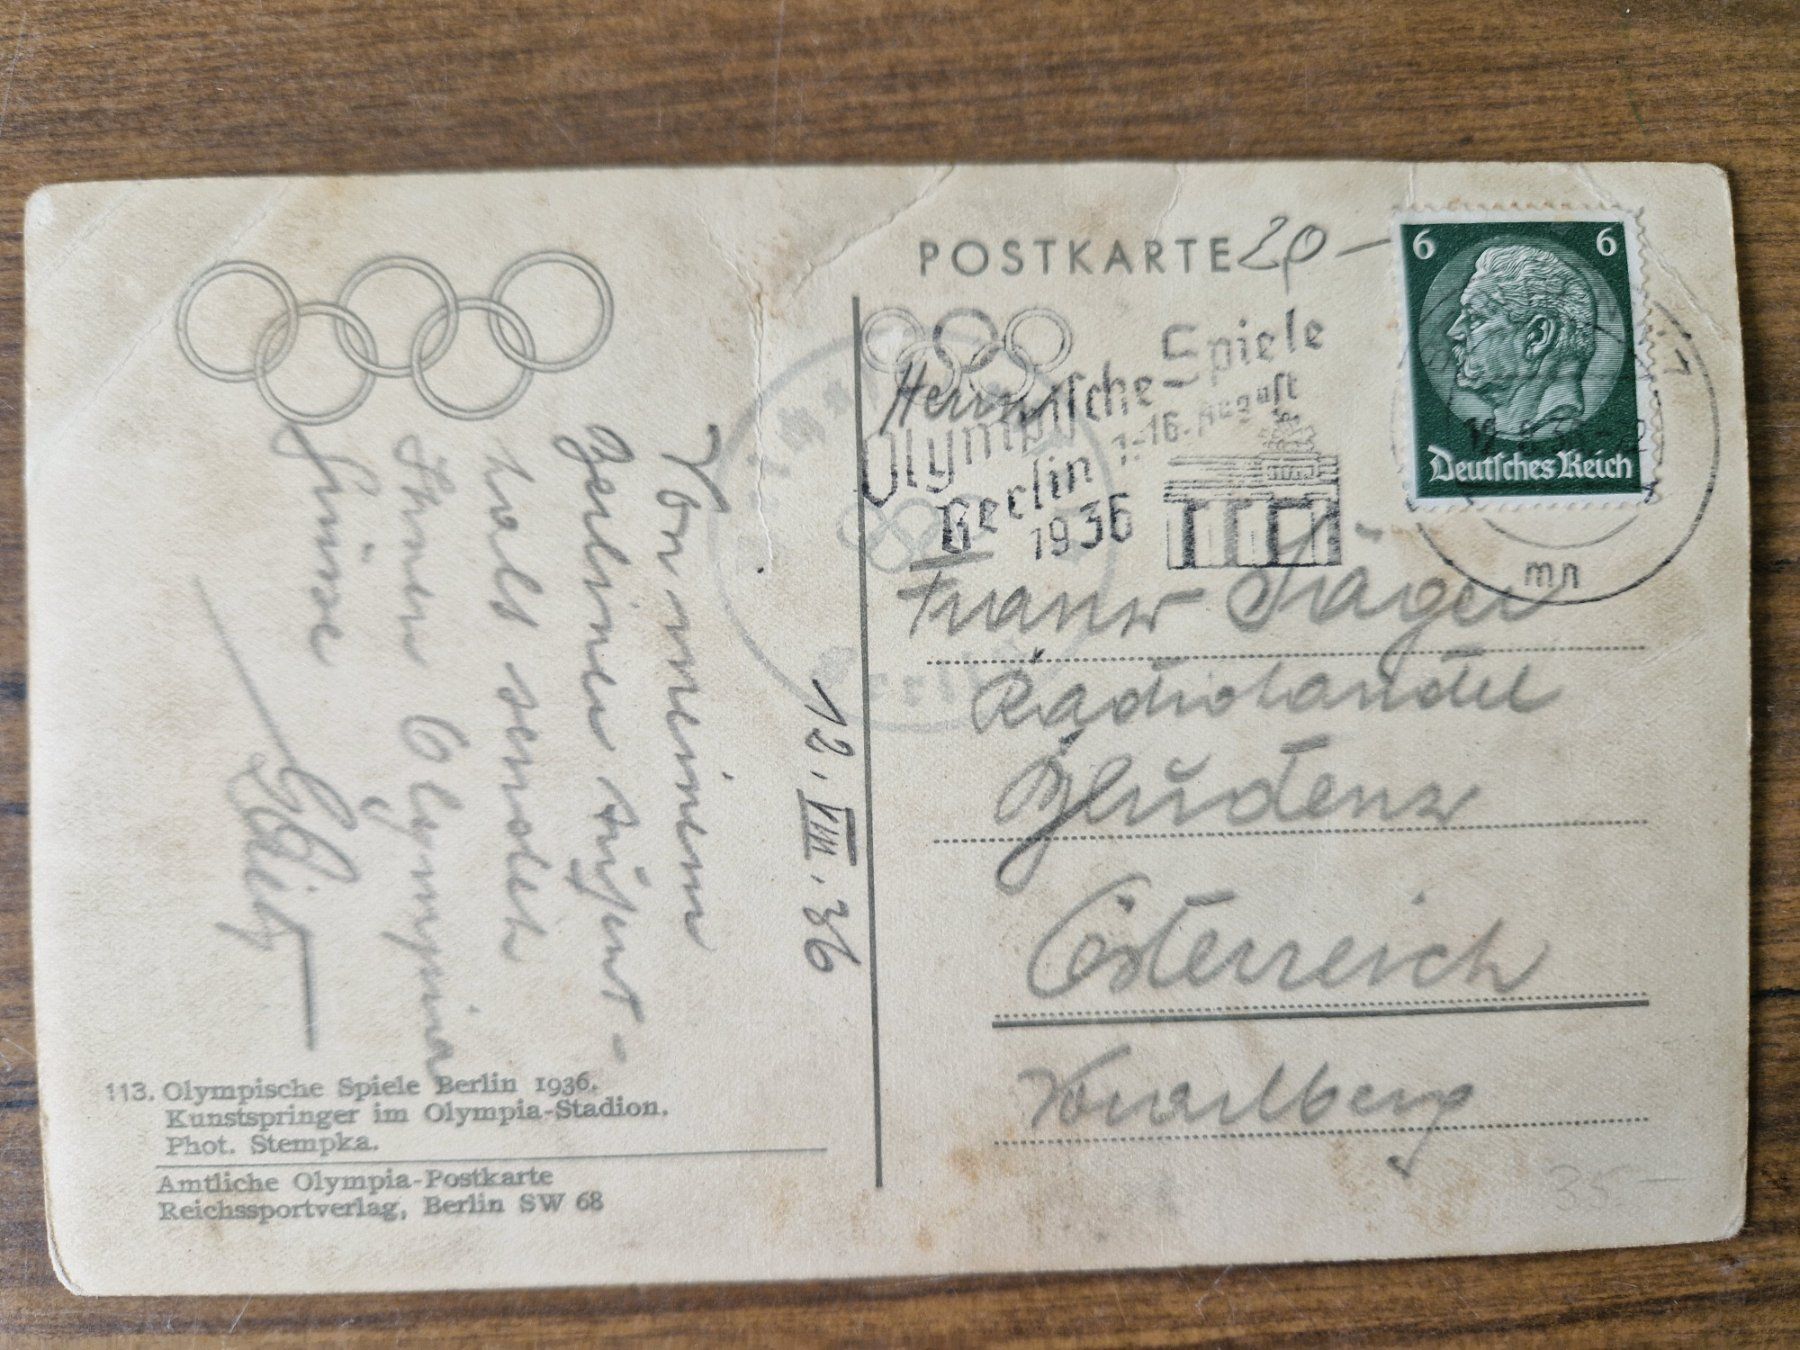 POSTKARTE 20 -
6 6
Deutsches Reich
Olympische Spiele
Berlin 1.-16. August
1936
mn
Berlin
Herrn
Franz Jäger
Radiohandel
Bludenz
Österreich
Vorarlberg
35 -
12. VIII. 36
Von meinem
Berliner Aufent-
halt sendet
Ihnen Olympia
Grüsse
113. Olympische Spiele Berlin 1936.
Kunstspringer im Olympia-Stadion.
Phot. Stempka.
Amtliche Olympia-Postkarte
Reichssportverlag, Berlin SW 68